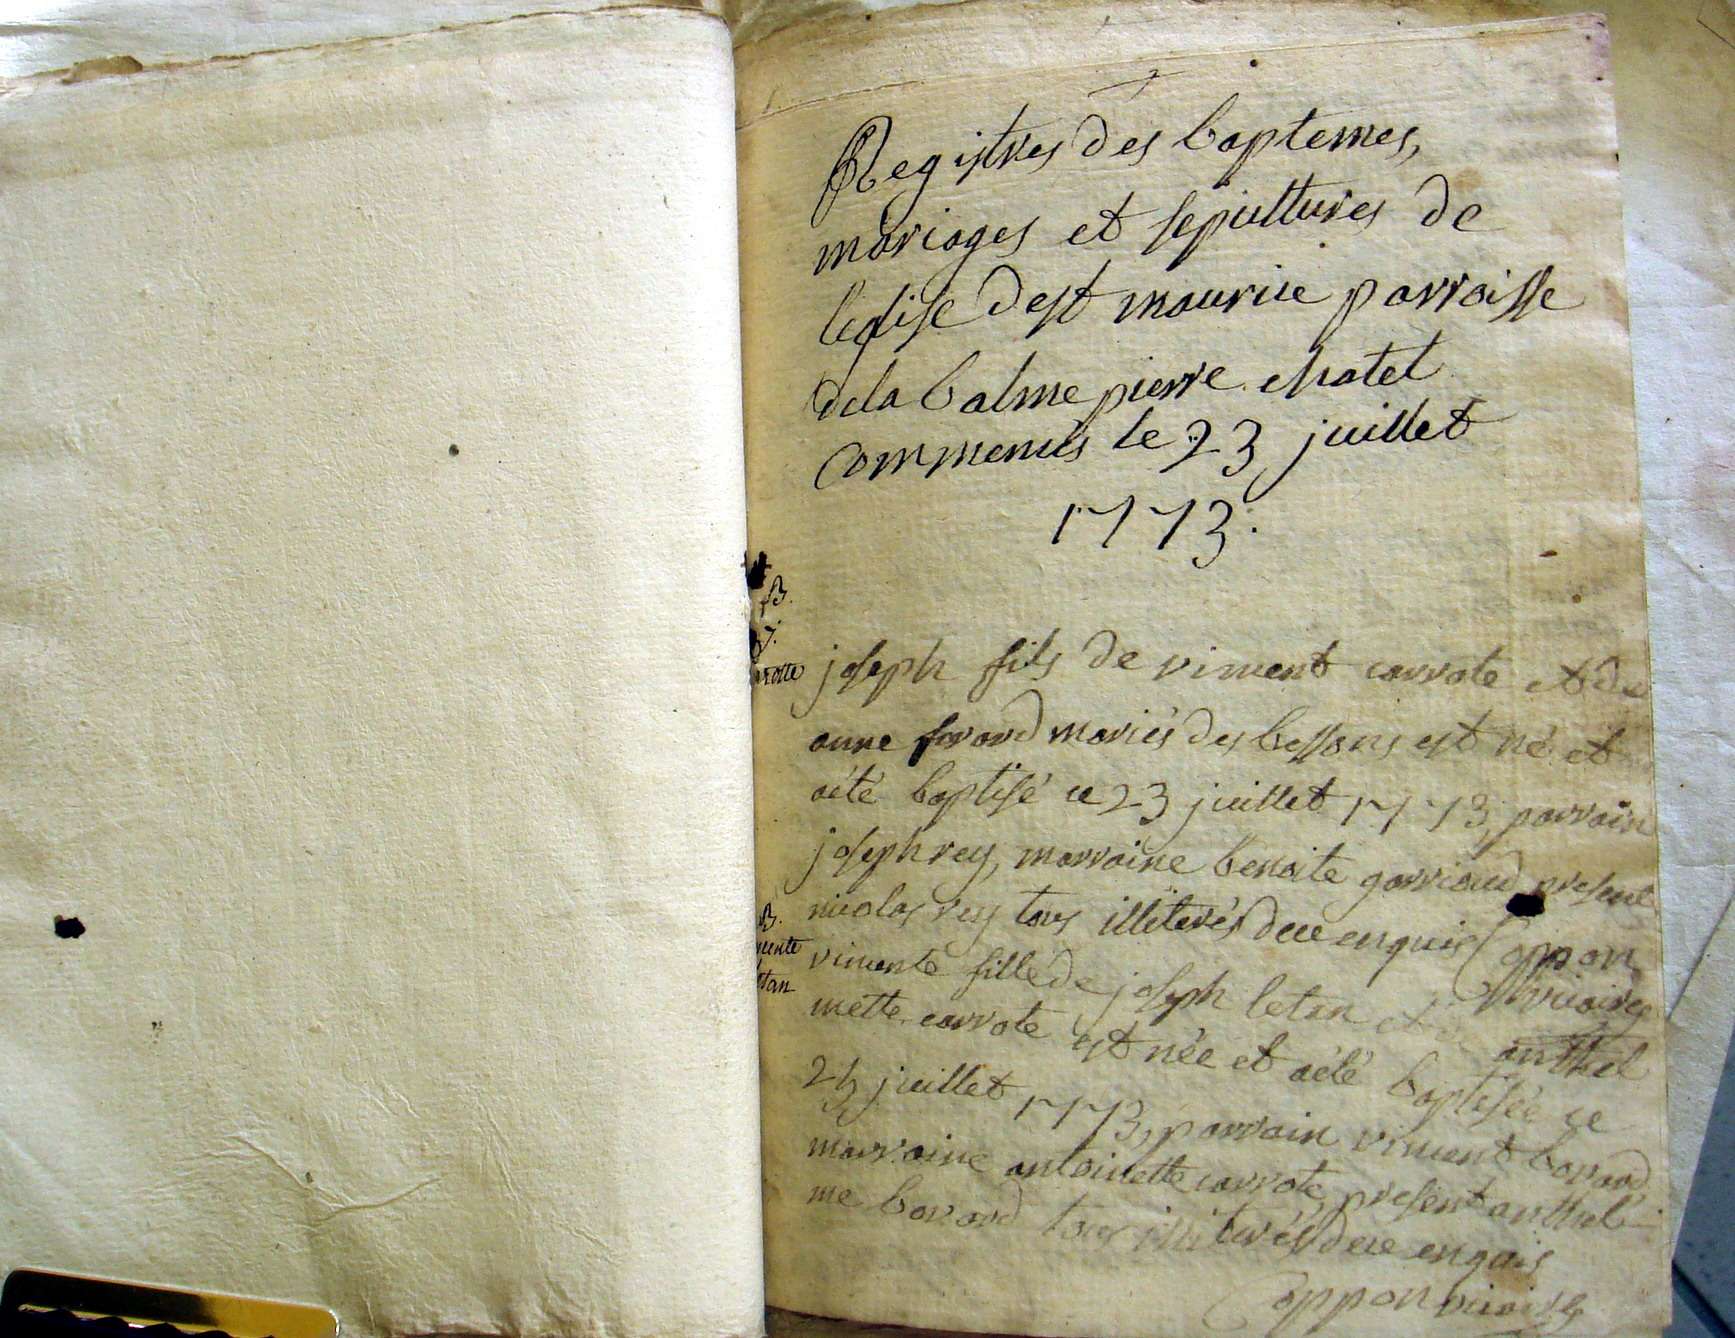 Registres des baptemes,
mariages et sepultures de
leglise de st maurice parroisse
de la balme pierre chatel
commencés le 23 juillet
1773.
B.
joseph fils de vincent carrote et de
anne mariés des bessons est né et
a été baptisé ce 23 juillet 1773, parrain
joseph rey, marraine benoite present
nicolas rey tous illiterés de ce enquis Cappon
vicaire
vincente fille de joseph letan et anthel
mette carrote est née et a été baptisée ce
juillet 1773, parrain vincent bovard
marraine antoinette carrote, present anthel
me bovard tous illiterés de ce enquis
Cappon vicaire
B.